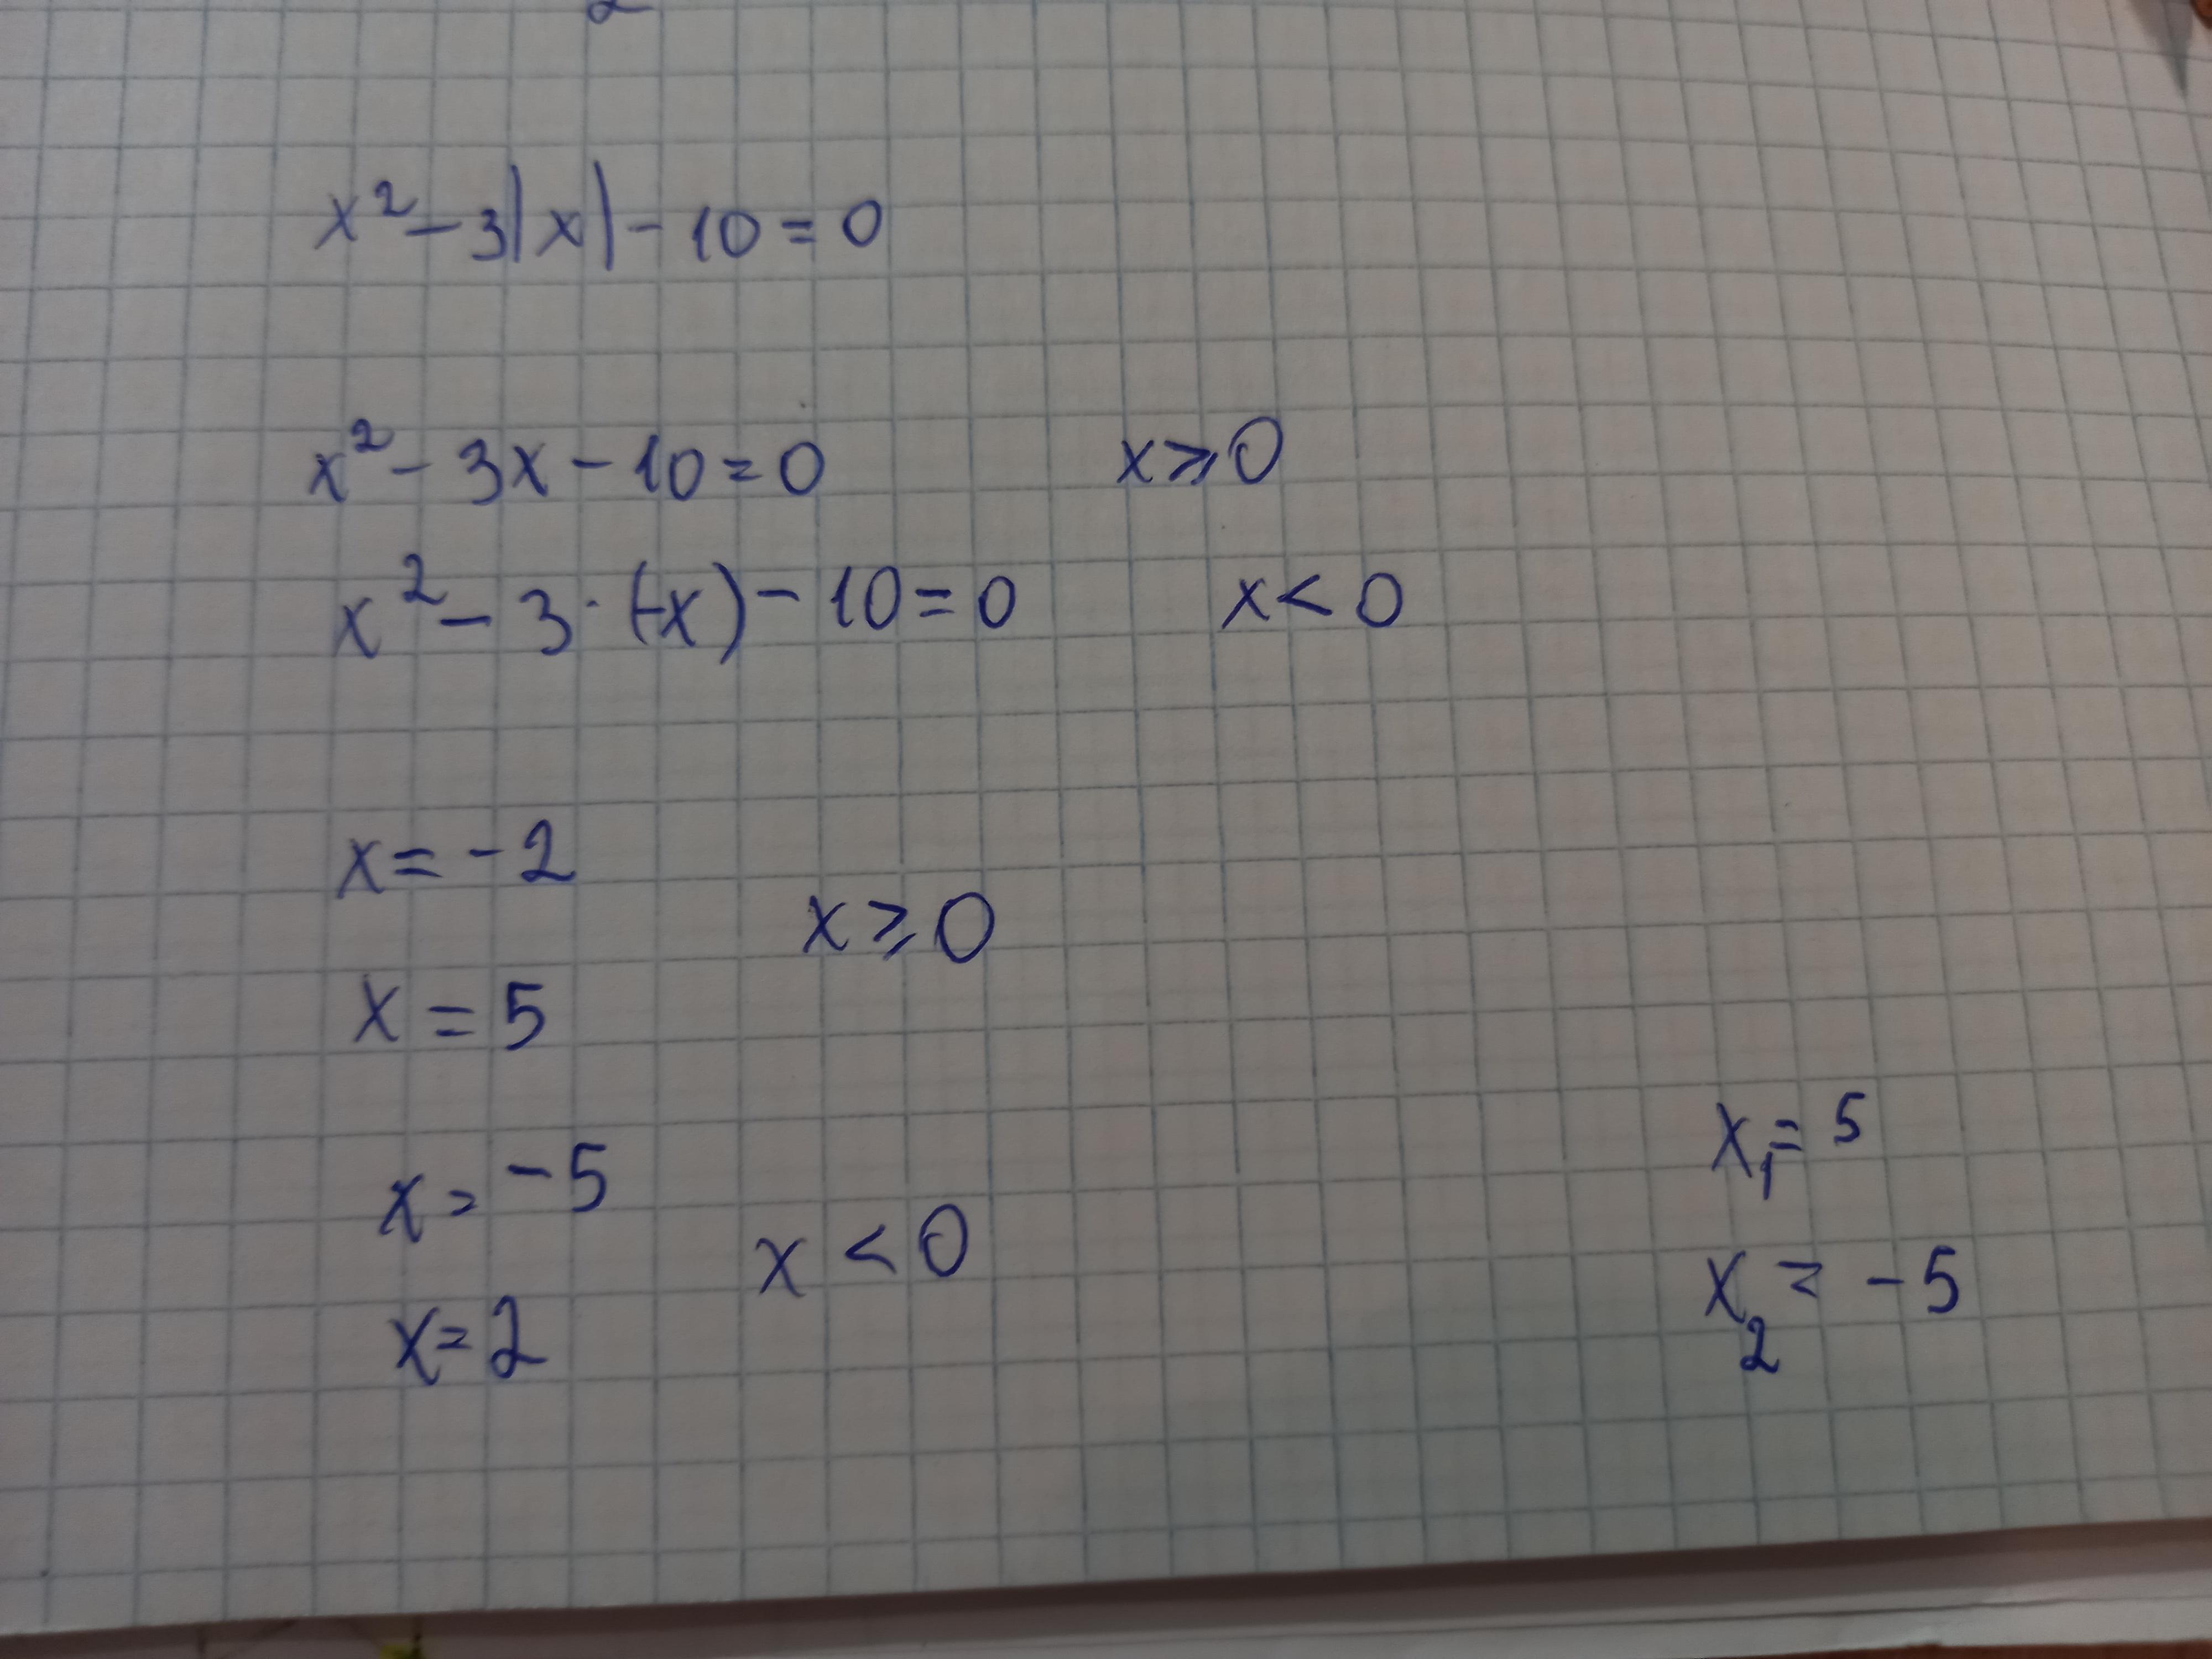 x² - 3|x| - 10 = 0
x² - 3x - 10 = 0 x ≥ 0
x² - 3 · (-x) - 10 = 0 x < 0
x = -2
x ≥ 0
x = 5
x₁ = 5
x = -5
x < 0
x₂ = -5
x = 2